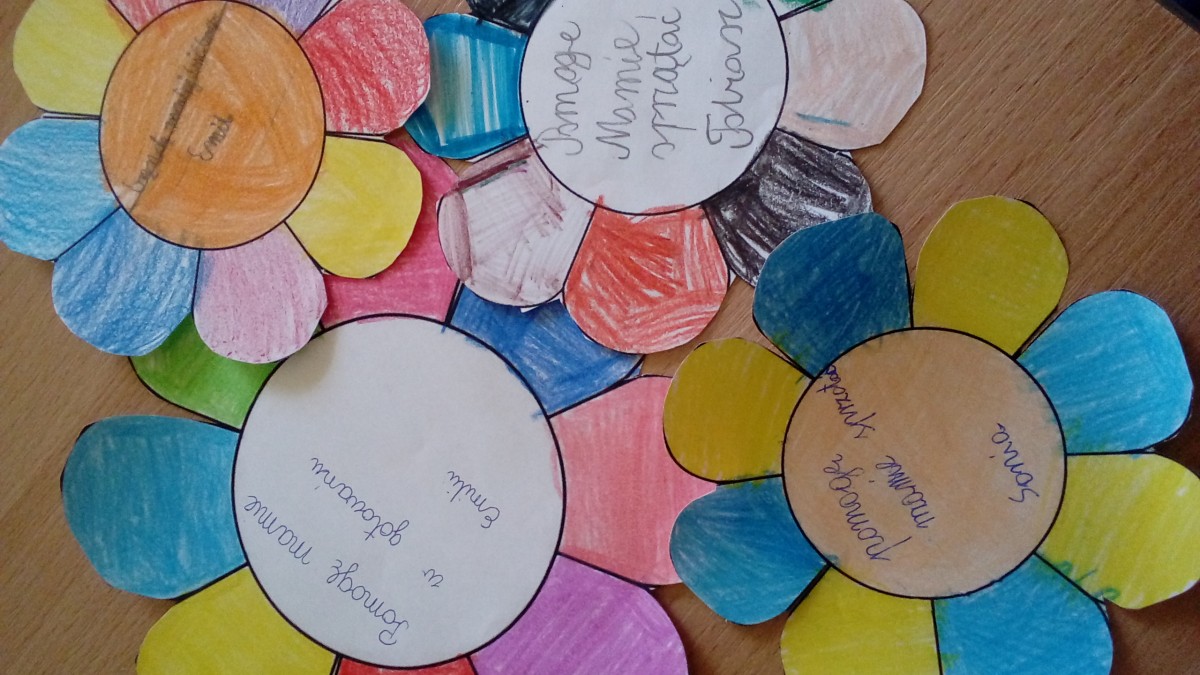 Emil
Pomoge
Mamie
sprzątać
Tobiasz
Pomogę mamie
w gotowaniu
Emilii
pomoge
mamie sprzatac
Sonia